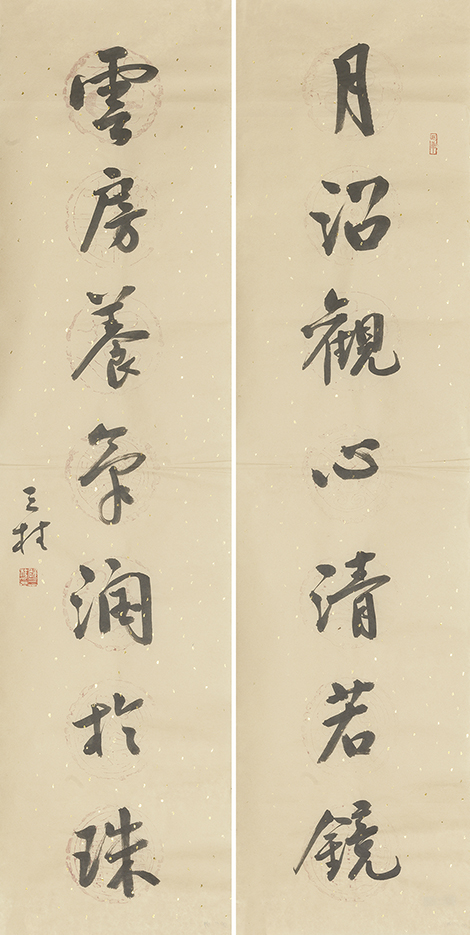 月沼觀心清若鏡
雲房養氣潤於珠